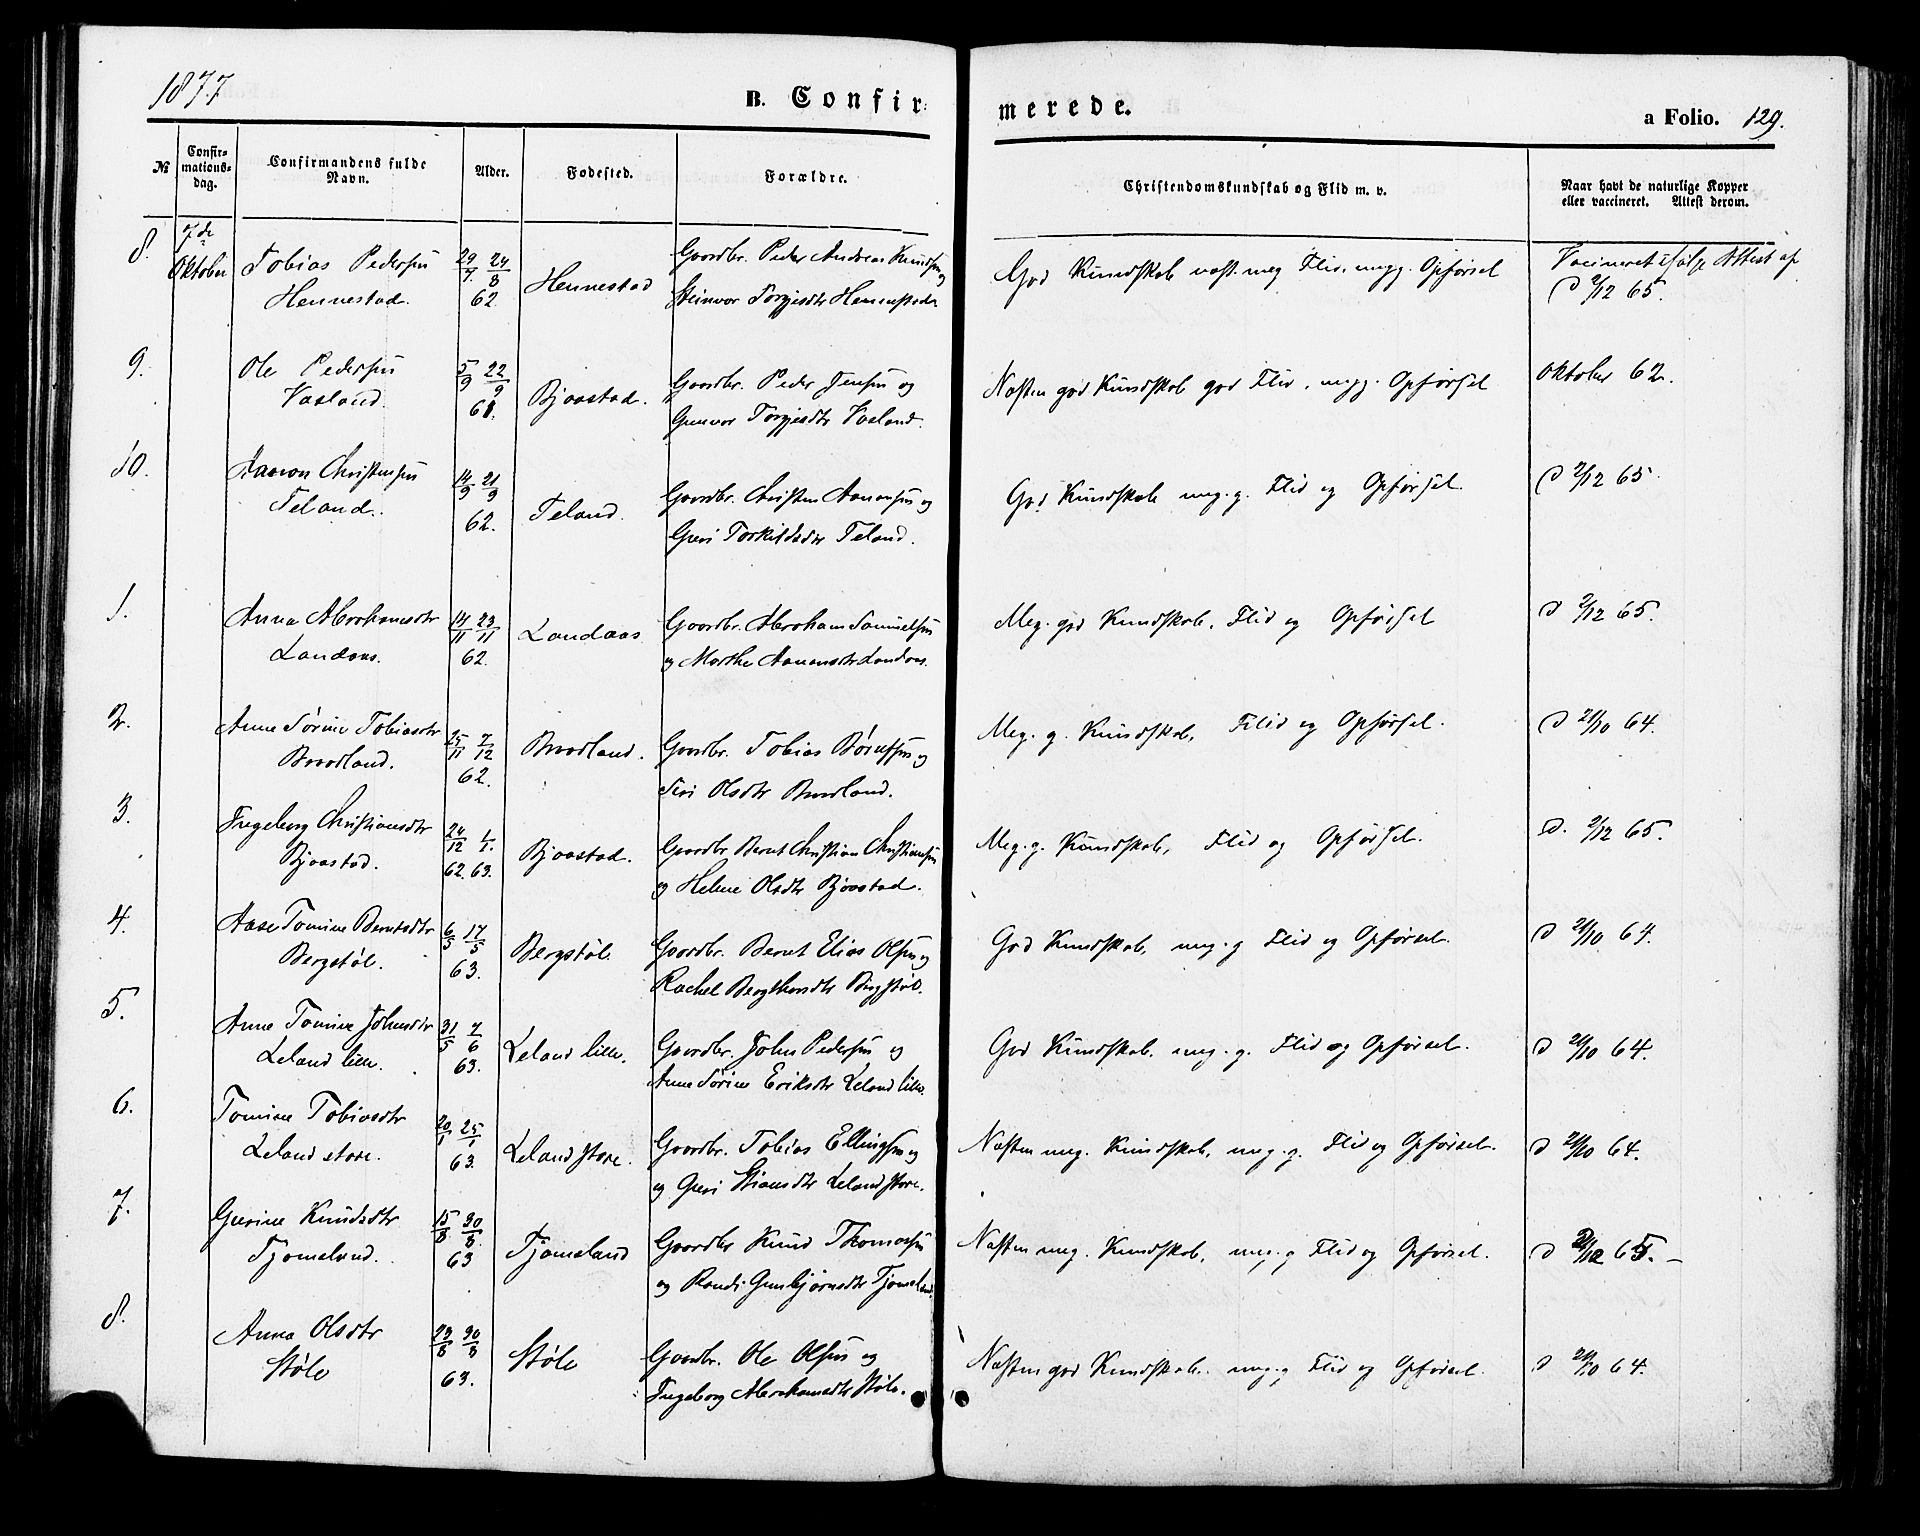 1877
B. Confir-
merede.
a Folio. 129.
№
Confir-
mations-
dag.
Confirmandens fulde
Navn.
Alder.
Fødested.
Forældre.
Christendomskundskab og Flid m. v.
Naar havt de naturlige Kopper
eller vaccineret. Attest derom.
8.
7de
Oktober
Tobias Pedersen
Hennestad.
29/7. 24/8
62.
Hennestad
Gaardbr. Peder Andreas Knudsen og
Steinvor Torgjesdtr Hennestad.
God Kundskab næst. meg Flid, megg. Opførsel
Vacineret ifølge Attest af
d 2/12 65.
9.
Ole Pedersen
Vasland.
5/9 22/9
61.
Bjaastad.
Gaardbr. Peder Jensen og
Gunvor Torgjesdtr Vasland.
Næsten god Kundskab god Flid, megg. Opførsel
Oktober 62.
10.
Aanon Christensen
Teland.
14/9 21/9
62.
Teland.
Gaardbr. Christen Aanonsen og
Gjeri Torkildsdtr Teland.
God Kundskab meg. g. Flid og Opførsel.
d 2/12 65.
1.
Anna Abrahamsdtr
Landaas.
14/11 23/11
62.
Landaas
Gaardbr. Abraham Samuelsen
og Marthe Aanensdtr Landaas.
Meg. god Kundskab, Flid og Opførsel
d 2/12 65.
2.
Anne Sørine Tobiasdtr
Braadland.
25/11 7/12
62.
Braadland.
Gaardbr. Tobias Børufsen og
Siri Olsdtr Braadland.
Meg. g. Kundskab, Flid og Opførsel.
d 21/10 64.
3.
Ingeborg Christiansdtr
Bjaastad.
24/12 1/1.
62. 63.
Bjaastad.
Gaardbr Bernt Christian Christiansen
og Helene Olsdtr Bjaastad.
Meg. g. Kundskab, Flid og Opførsel.
d. 2/12 65.
4.
Aase Tomine Berntsdtr
Bergstøl.
6/5 17/5
63.
Bergstøl
Gaardbr. Bernt Elias Olsen og
Rachel Bergthorsdtr Bergstøl.
God Kundskab, meg. g Flid og Opførsel.
d 21/10 64.
5.
Anne Tomine Johnsdtr
Leland lille.
31/5 7/6
63.
Leland lille.
Gaardbr. John Pedersen og
Anne Sørine Eriksdtr Leland lille.
God Kundskab. meg. g. Flid og Opførsel.
d 21/10 64.
6.
Tomine Tobiasdtr
Leland store.
20/1 25/1
63.
Leland store.
Gaardbr. Tobias Ellingsen og
og Gjeri Stiansdtr Leland store.
Næsten meg. Kundskab, meg. g. Flid og Opførsel.
d 21/10 64.
7.
Gurine Knudsdtr
Tjomsland.
15/8 30/8
63
Tjomsland
Gaardbr Knud Thomassen
og Randi Gunbjørnsdtr Tjomsland.
Næsten meg. Kundskab, meg. g Flid og Opførsel.
d 2/12 65. -
8.
Anna Olsdtr
Støle
23/8 30/8
63.
Støle
Gaardbr. Ole Olsen og
Ingeborg Abrahamsdtr Støle.
Næsten god Kundskab. meg. g Flid og Opførsel.
d 21/10 64.